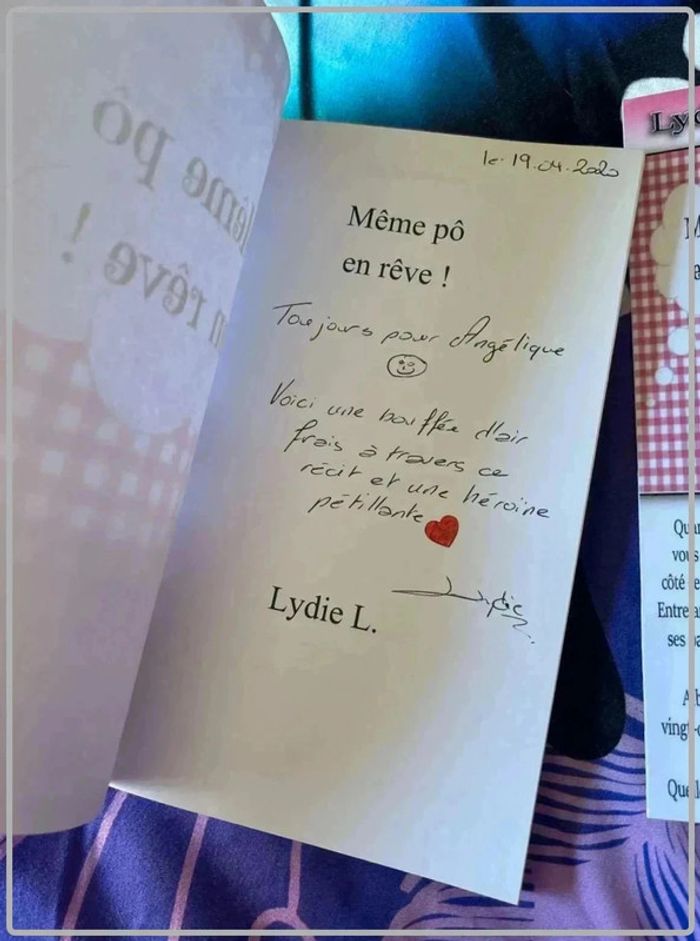 le 19.04.2020
Même pô
en rêve !
Toujours pour Angélique
Voici une bouffée d'air
frais à travers ce
récit et une héroïne
pétillante
Lydie L.
Lydie
ême pô
n rêve !
Ly
vous
côté
Entre
ses